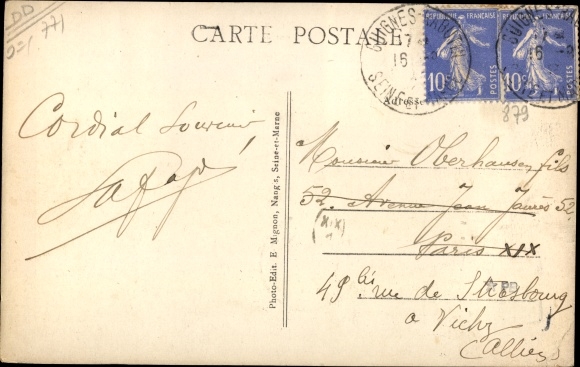 DD
771
CARTE POSTALE
RÉPUBLIQUE FRANÇAISE
10c POSTES
RÉPUBLIQUE FRANÇAISE
10c POSTES
16
16
Adresse
879
Cordial Souvenir
Photo-Edit. E Mignon, Nangis, Seine-et-Marne
Monsieur Oberhausen fils
52. Avenue Jean Jaurès 52
(XIX)
Paris XIX
DD
49 bis rue de Strasbourg
a Vichy
(Allier)